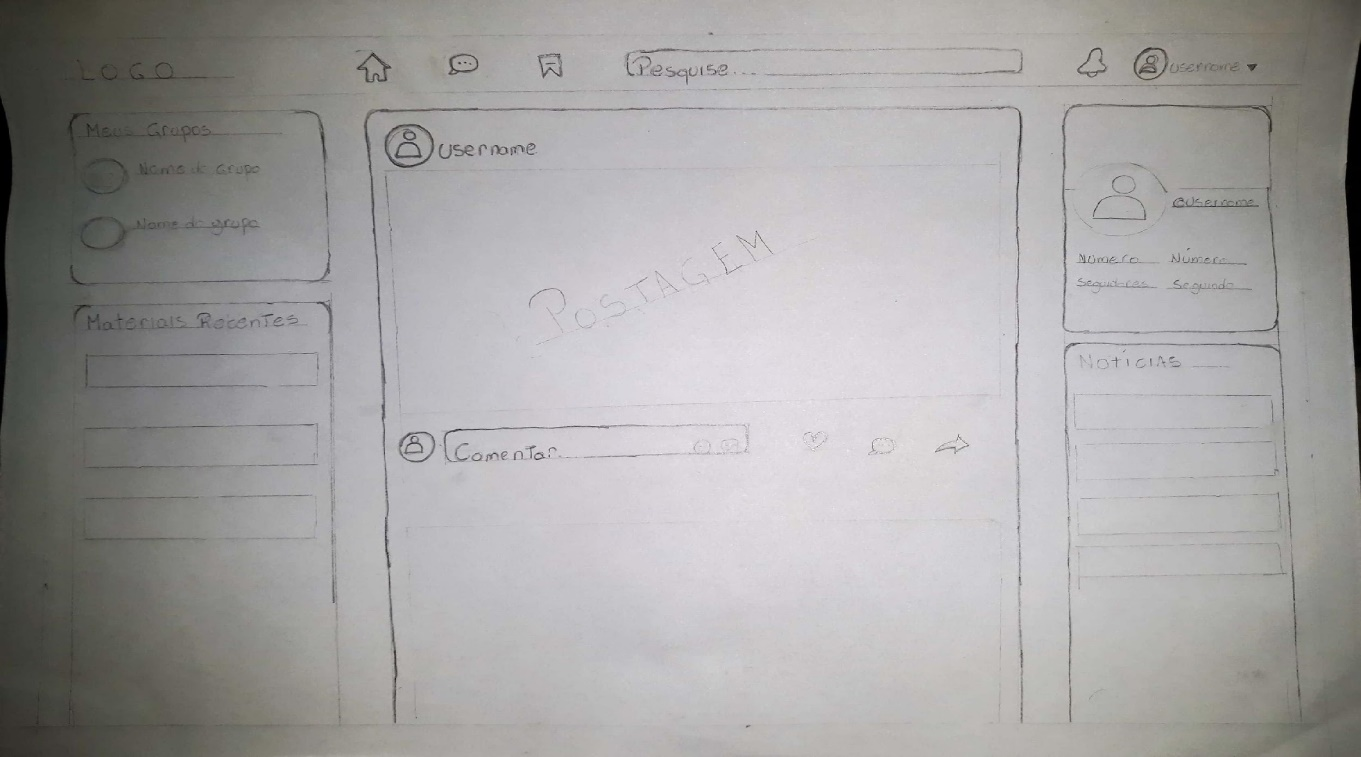 LOGO
Pesquise...
username
Meus Grupos
Nome do Grupo
Nome do grupo
Materiais Recentes
username
POSTAGEM
Comentar...
@username
Número Número
Seguidores Seguindo
NOTÍCIAS